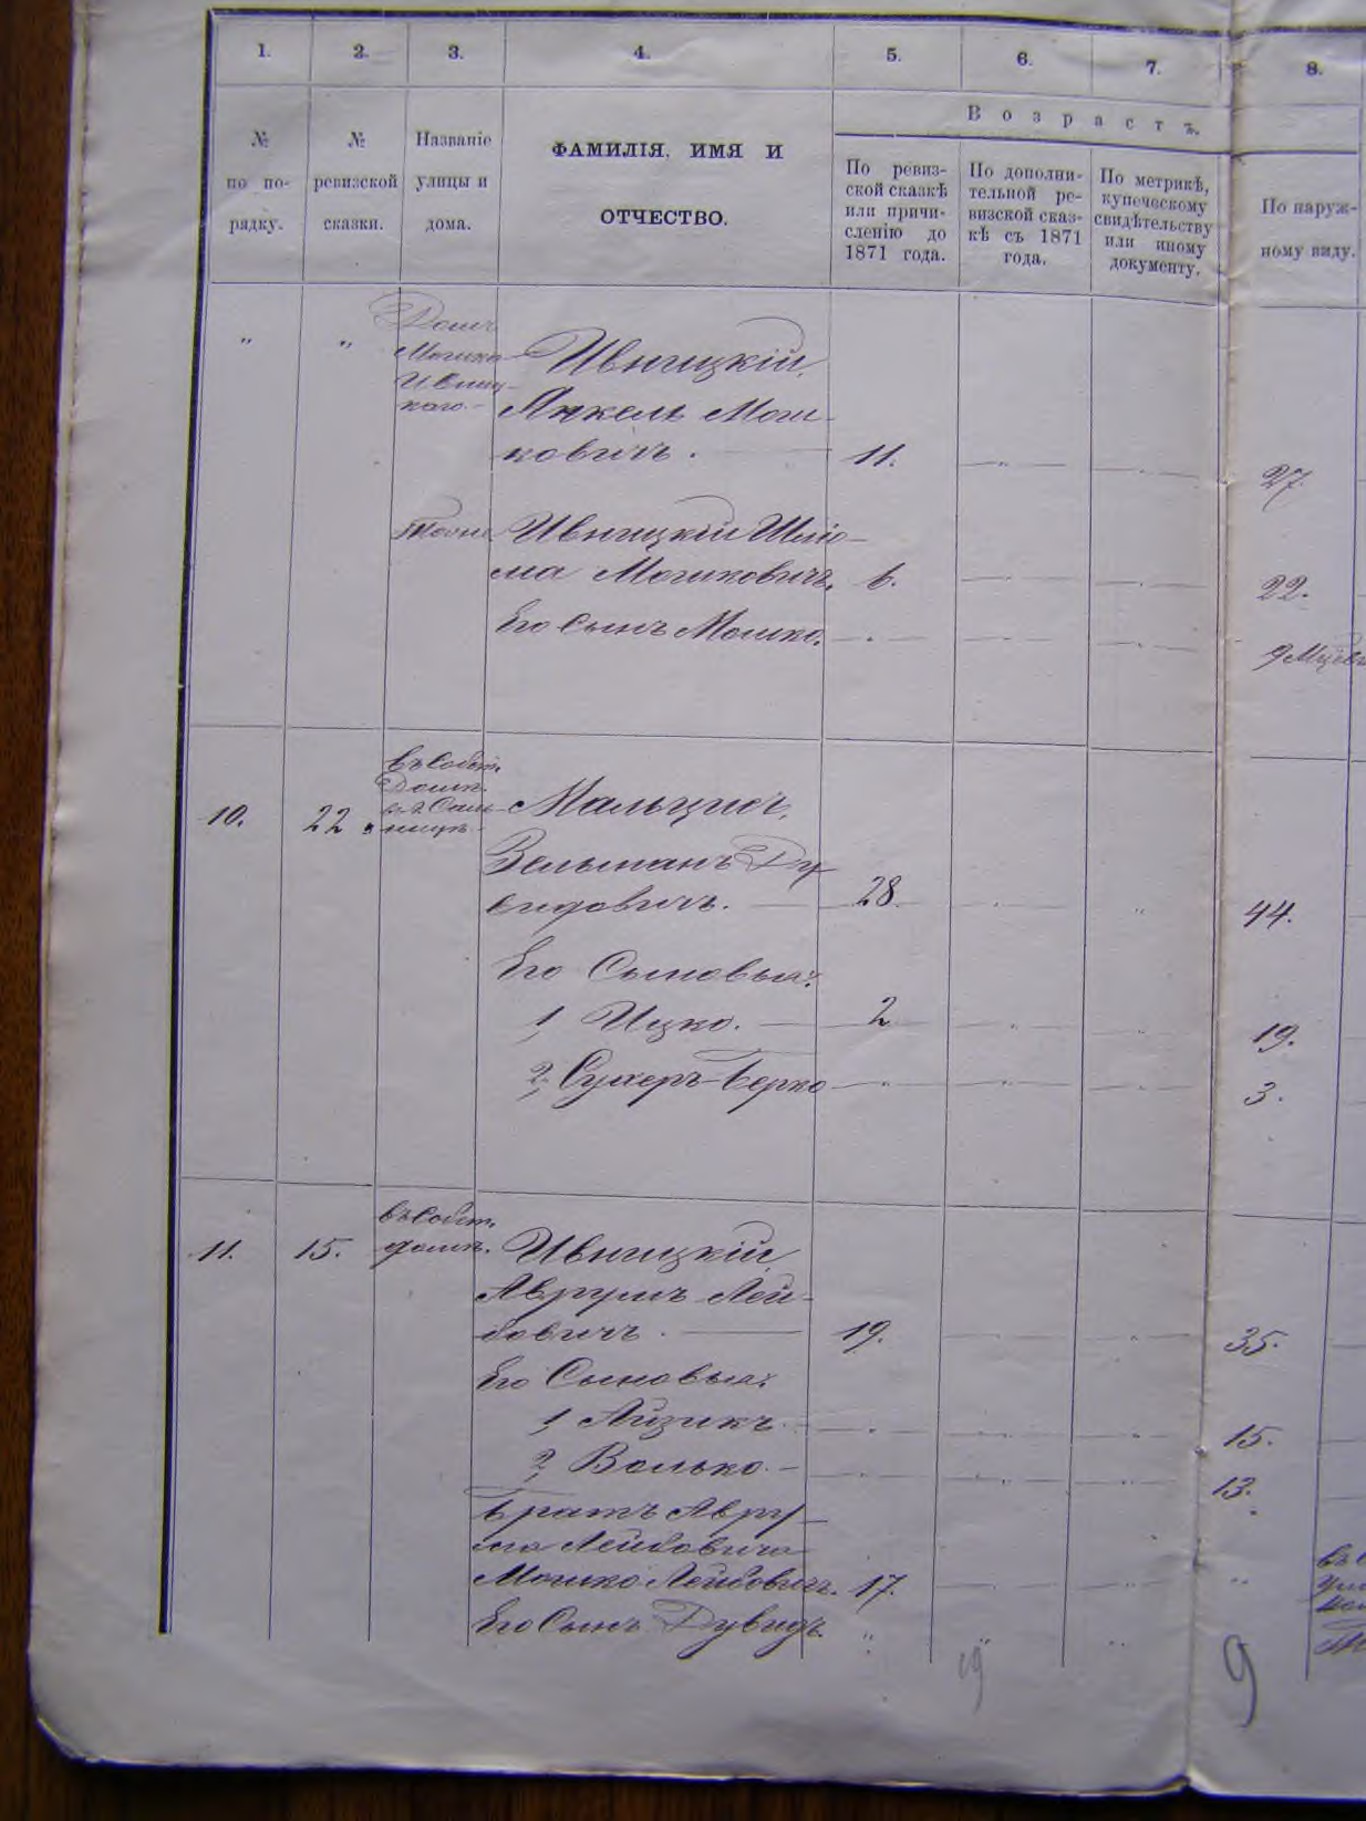 1. 2. 3. 4. 5. 6. 7. 8.
Возрастъ.
№ по порядку.
№ ревизской сказки.
Названіе улицы и дома.
ФАМИЛІЯ, ИМЯ И
ОТЧЕСТВО.
По ревиз-
ской сказкѣ
или причи-
сленію до
1871 года.
По дополни-
тельной ре-
визской сказ-
кѣ съ 1871
года.
По метрикѣ,
купеческому
свидѣтельству
или иному
документу.
По наруж-
ному виду.
" " Домъ
Мошка
Ивниц-
каго.
Ивницкій,
Янкель Мош-
ковичъ. 11. 27.
Ивницкій Шлио-
ма Мошковичъ, 6. 22.
Его Сынъ Мошко.
въ Собст.
Домѣ
10. 22. Мальцисъ,
Зельманъ Ду-
видовичъ. 28. 44.
Его Сыновья:
1, Ицко. 2 19.
2, Сухеръ-Берко 3.
въ Собст.
домѣ.
11. 15. Ивницкій,
Аврумъ Лей-
бовичъ. 19. 35.
Его Сыновья:
1, Айзикъ 15.
2, Волько. 13.
Братъ Авру-
ма Лейбовича
Мошко Лейбовичъ. 17. "
Его Сынъ Дувидъ. "
9